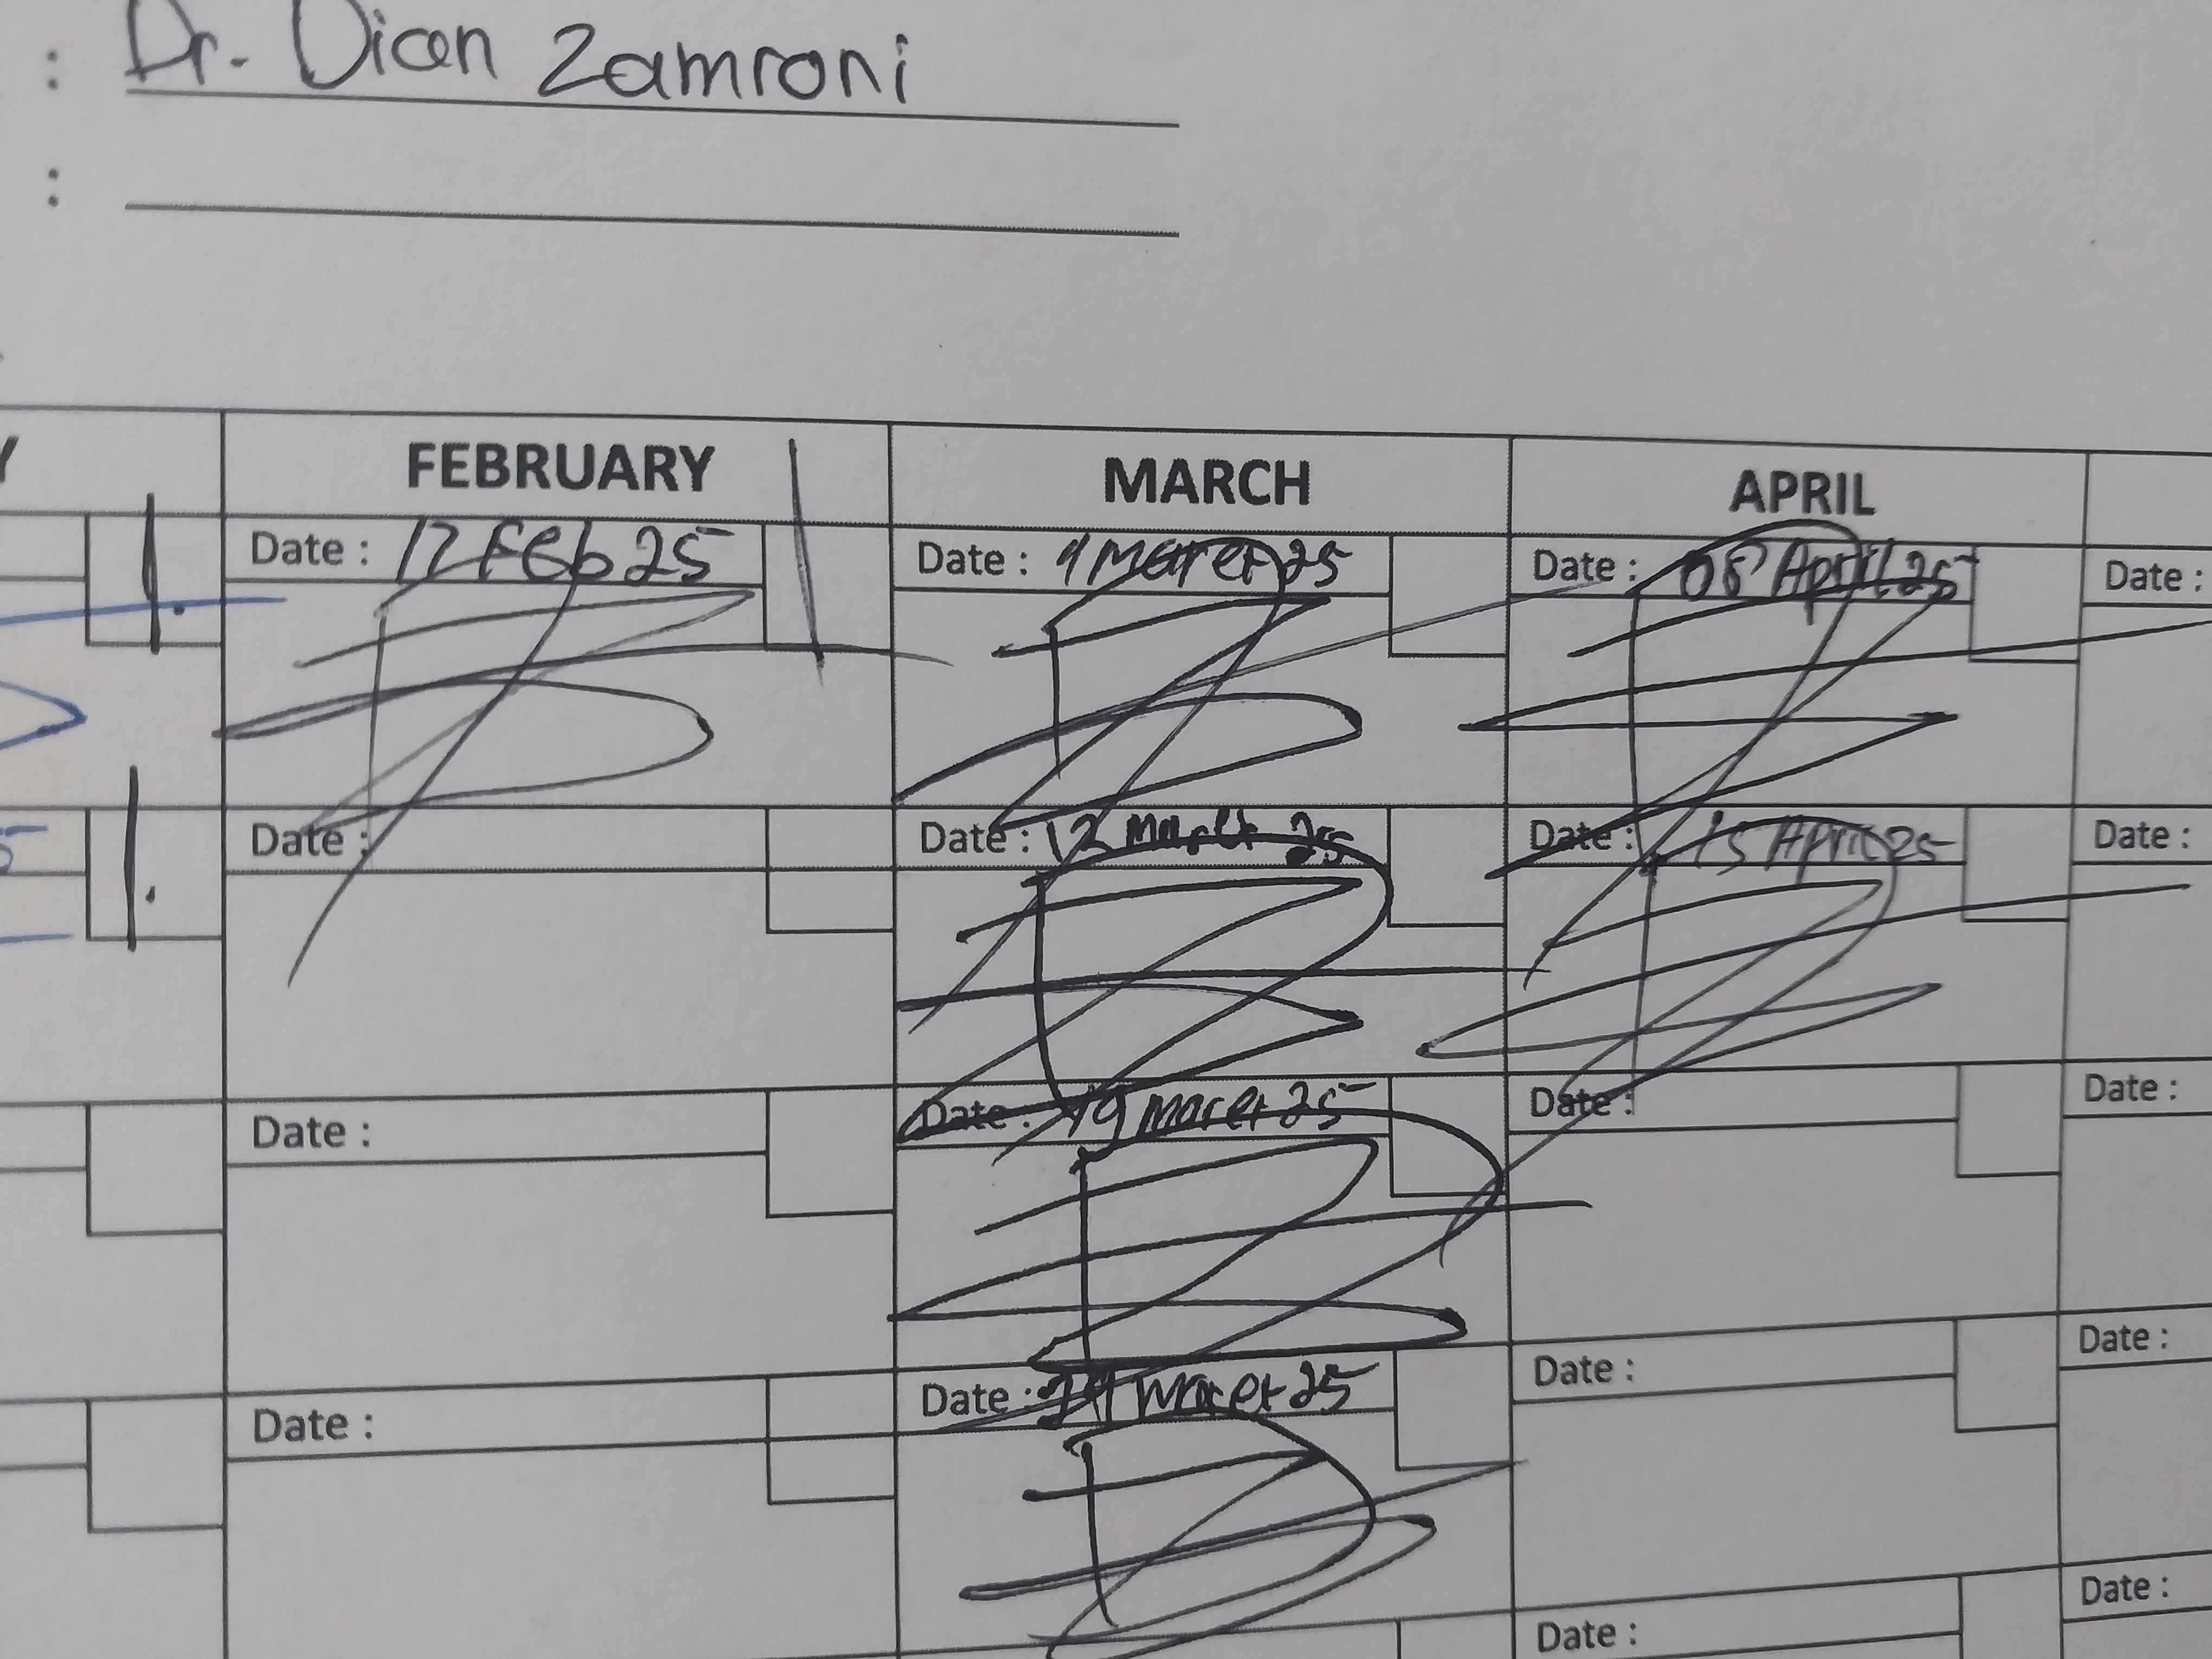 : Dr. Dian Zamroni
:
Y FEBRUARY MARCH APRIL
Date : 12 Feb 25 Date : Maret 25 Date : 08 April 25 Date :
Date : Date : 12 25 Date : 15 April 25 Date :
Date : Date : 19 Maret 25 Date : Date :
Date : Date : Maret 25 Date : Date :
Date : Date :